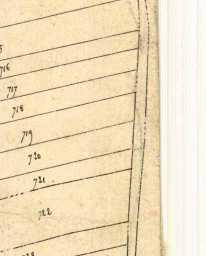 716
717
718
719
720
721
722